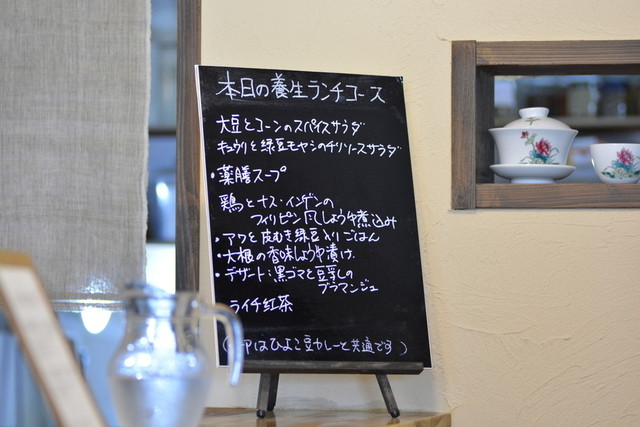 本日の養生ランチコース
大豆とコーンのスパイスサラダ
キュウリと緑豆モヤシのチリソースサラダ
・薬膳スープ
鶏とナス・インゲンの
フィリピン風しょうゆ煮込み
・アワと皮むき緑豆入りごはん
・大根の香味しょうゆ漬け
・デザート：黒ゴマと豆乳の
ブラマンジュ
ライチ紅茶
(・印はひよこ豆カレーと共通です)